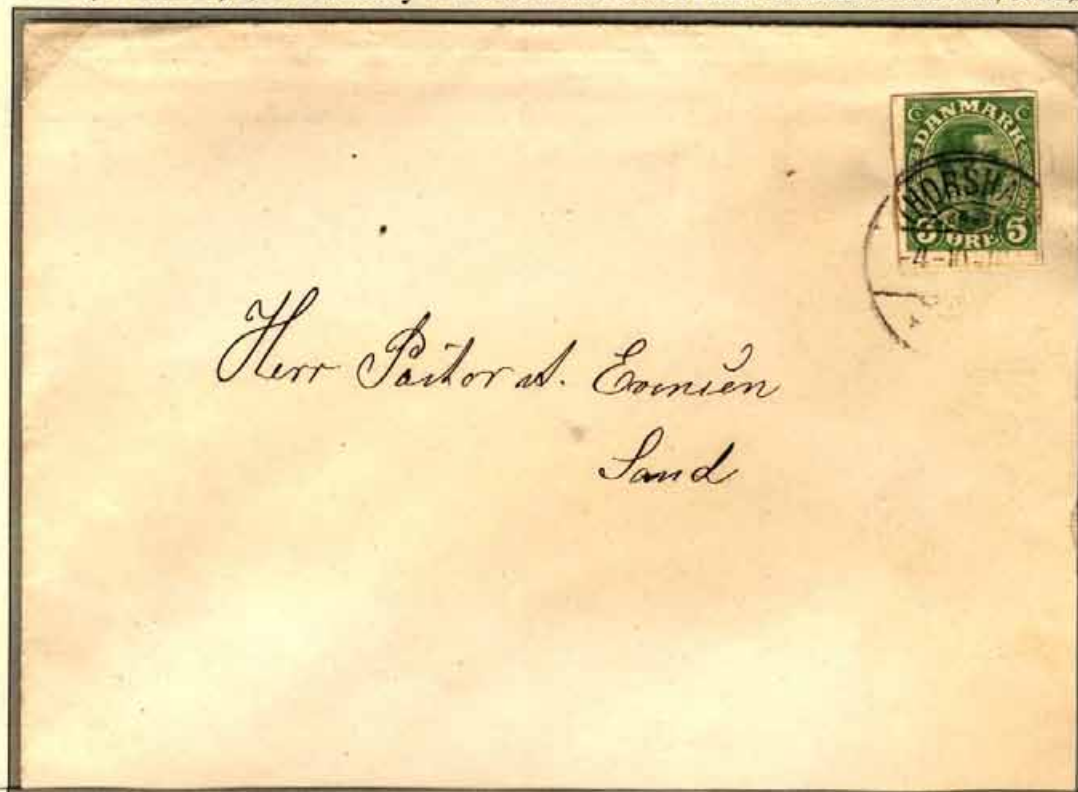 DANMARK
THORSHA
5 ØRE 5
Herr Pastor A. Evensen
Sand